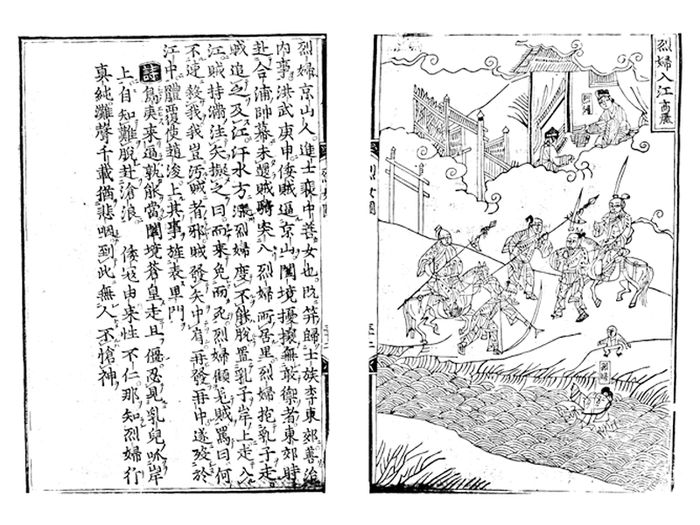 烈婦入江 高麗
烈婦
烈婦
烈女圖
烈婦京山人進士裵中善女也既笄歸士族李東郊善治
內事洪武庚申倭賊逼京山闔境擾擾無敢禦者東郊時
赴合浦帥幕未還賊騎突入烈婦所居里烈婦抱乳子走
賊追之及江江水方漲烈婦度不能脫置乳子岸上走入
江賊持滿注矢擬之曰而來免而死烈婦顧見賊罵曰何
不速殺我我豈汚賊者邪賊發矢中肩再發再中遂歿於
江中體覆使趙浚上其事旌表里門
詩島夷來逼孰能當闔境蒼皇走且僵忍見乳兒呱岸
上自知難脫赴滄浪 倭寇由來性不仁那知烈婦行
真純灘聲千載猶悲咽到此無人不愴神